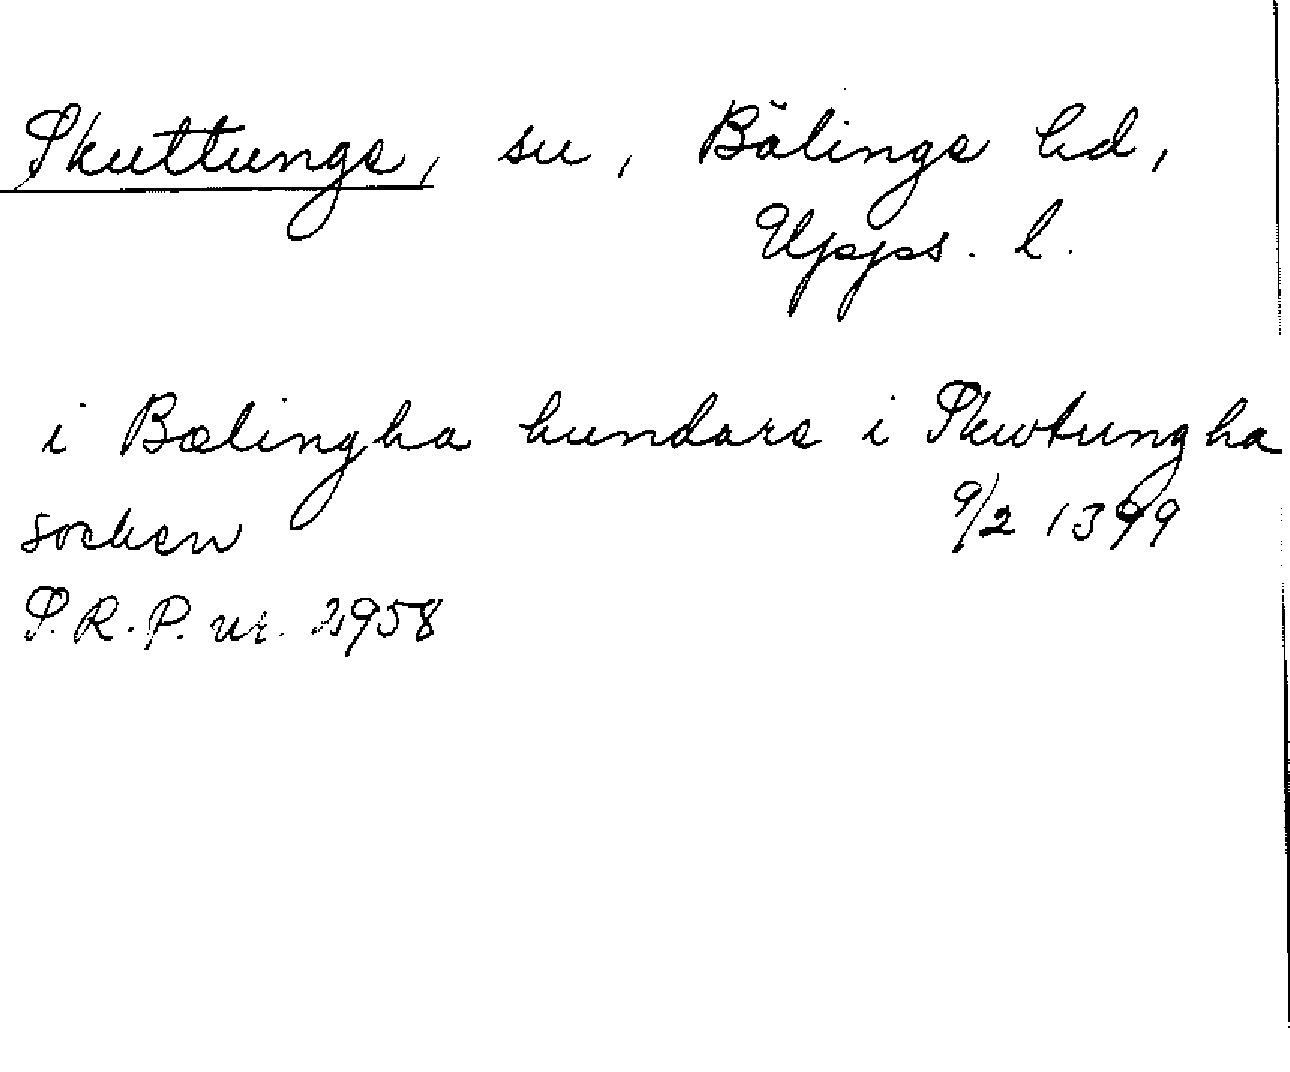 Skuttunge, sn, Bälinge hd,
Upps. l.
i Bælingha hundare i Skwtungha
socken 9/2 1399
S.R.P. nr. 2958